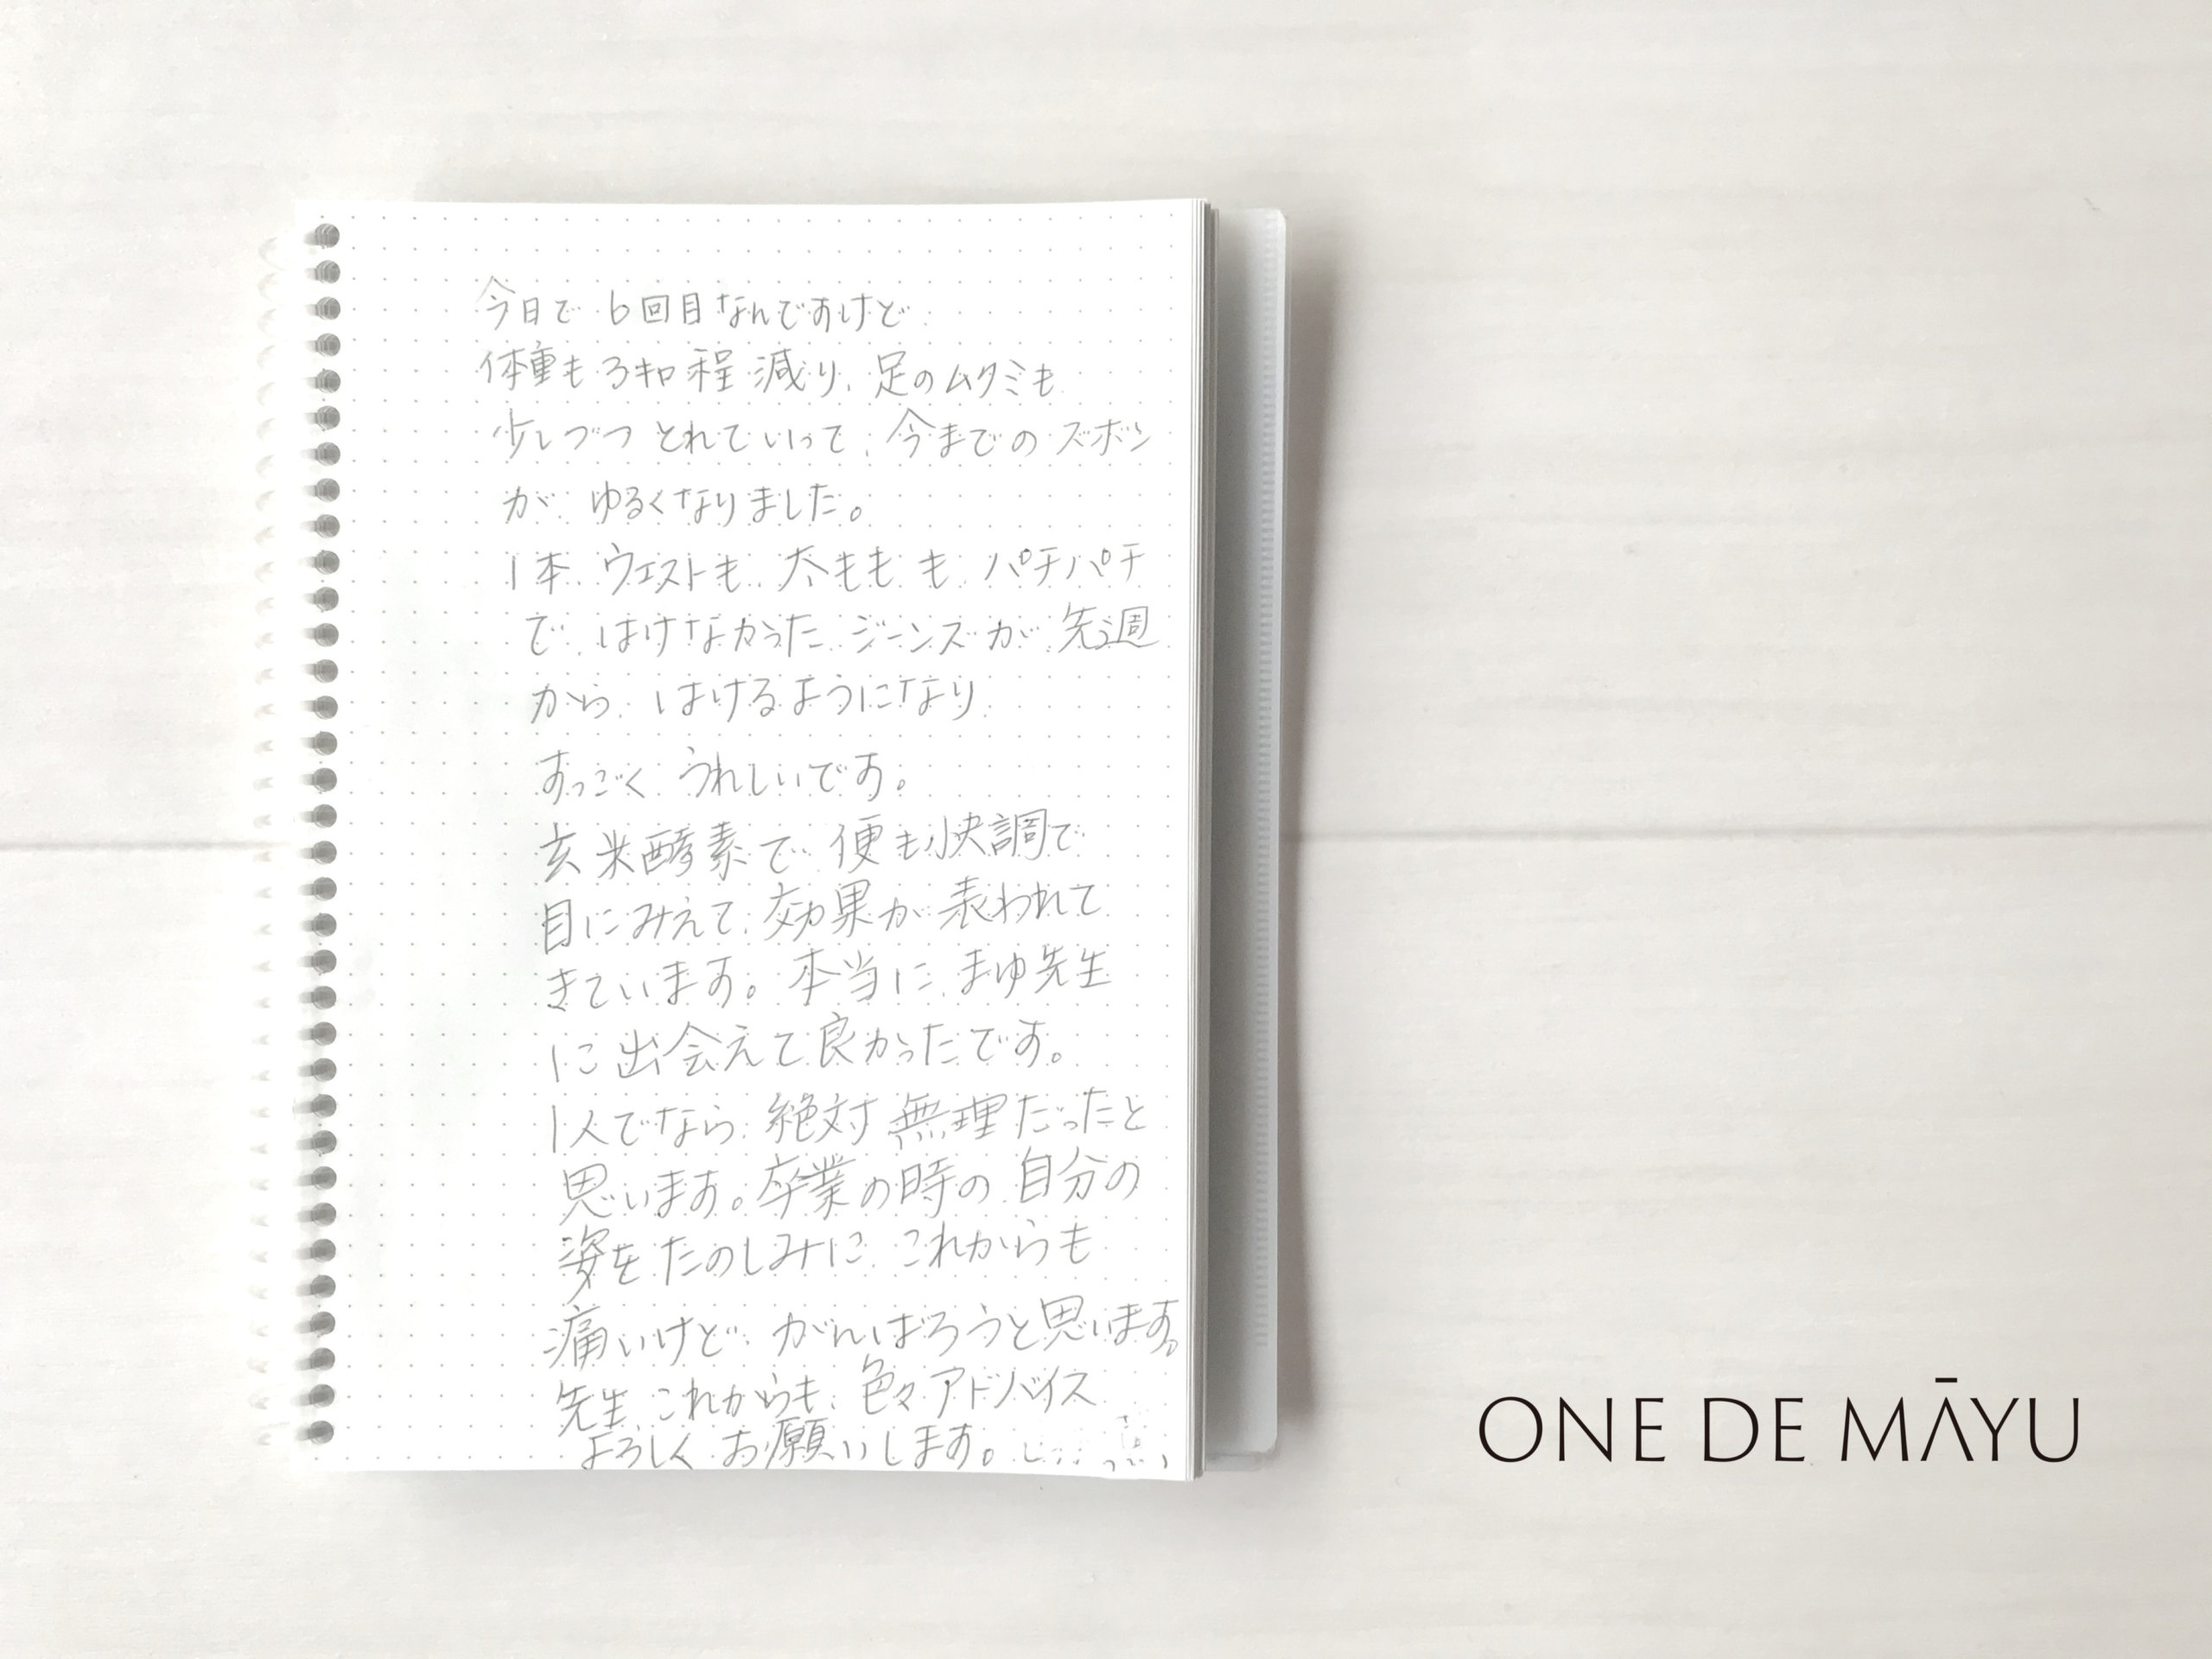 今日で 6回目なんですけど
体重も3キロ程減り、足のムクミも
少しづつ とれていって、今までのズボン
が ゆるくなりました。
1本 ウエストも、太ももも パチパチ
で、はけなかった ジーンズが 先週
から はけるようになり
すっごく うれしいです。
玄米酵素で 便も快調で
目にみえて 効果が表われて
きています。本当に まゆ先生
に出会えて良かったです。
1人でなら 絶対 無理だったと
思います。卒業の時の 自分の
姿をたのしみに これからも
痛いけど がんばろうと思います。
先生 これからも、色々アドバイス
よろしくお願いします。
ONE DE MĀYU